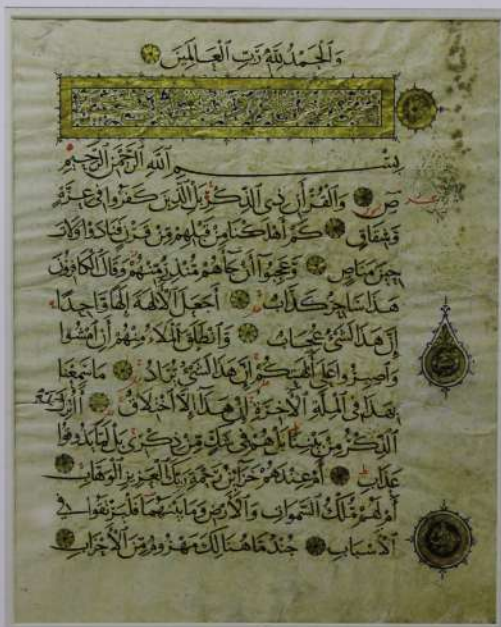 وَالْحَمْدُ لِلَّهِ رَبِّ الْعَالَمِينَ
بِسْمِ اللَّهِ الرَّحْمَنِ الرَّحِيمِ
صٓ وَالْقُرْآنِ ذِي الذِّكْرِ بَلِ الَّذِينَ كَفَرُوا فِي عِزَّةٍ
وَشِقَاقٍ كَمْ أَهْلَكْنَا مِنْ قَبْلِهِمْ مِنْ قَرْنٍ فَنَادَوْا وَلَاتَ
حِينَ مَنَاصٍ وَعَجِبُوا أَنْ جَاءَهُمْ مُنْذِرٌ مِنْهُمْ وَقَالَ الْكَافِرُونَ
هَذَا سَاحِرٌ كَذَّابٌ أَجَعَلَ الْآلِهَةَ إِلَهًا وَاحِدًا
إِنَّ هَذَا لَشَيْءٌ عُجَابٌ وَانْطَلَقَ الْمَلَأُ مِنْهُمْ أَنِ امْشُوا
وَاصْبِرُوا عَلَى آلِهَتِكُمْ إِنَّ هَذَا لَشَيْءٌ يُرَادُ مَا سَمِعْنَا
بِهَذَا فِي الْمِلَّةِ الْآخِرَةِ إِنْ هَذَا إِلَّا اخْتِلَاقٌ أَأُنْزِلَ عَلَيْهِ
الذِّكْرُ مِنْ بَيْنِنَا بَلْ هُمْ فِي شَكٍّ مِنْ ذِكْرِي بَلْ لَمَّا يَذُوقُوا
عَذَابِ أَمْ عِنْدَهُمْ خَزَائِنُ رَحْمَةِ رَبِّكَ الْعَزِيزِ الْوَهَّابِ
أَمْ لَهُمْ مُلْكُ السَّمَوَاتِ وَالْأَرْضِ وَمَا بَيْنَهُمَا فَلْيَرْتَقُوا فِي
الْأَسْبَابِ جُنْدٌ مَا هُنَالِكَ مَهْزُومٌ مِنَ الْأَحْزَابِ